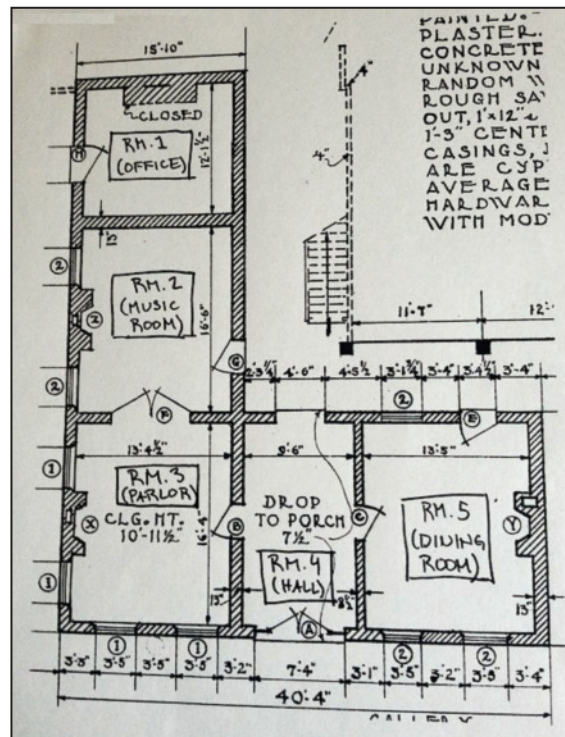 PAINTED.
PLASTER.
CONCRETE
UNKNOWN
RANDOM
ROUGH
OUT, 1"x12"
1'-3" CENT
CASINGS,
ARE CYP
AVERAGE
HARDWAR
WITH MOD
15'-10"
CLOSED
RM. 1
(OFFICE)
12'-1½"
H
4"
4"
2
RM. 2
(MUSIC
ROOM)
2
16'-6"
G
2
F
11'-7"
12'
2'-3¾"
4'-6"
4'-5½"
3'-1¾"
3'-4"
3'-4½"
3'-4"
2
E
1
13'-4½"
9'-6"
13'-5"
RM. 3
(PARLOR)
X
CLG. HT.
10'-11½"
16'-4"
B
DROP
TO PORCH
7½"
C
RM. 5
(DINING
ROOM)
Y
RM. 4
(HALL)
1
13"
8½"
13"
A
1
1
2
2
3'-3"
3'-5"
3'-5"
3'-5"
3'-2"
7'-4"
3'-1"
3'-5"
3'-2"
3'-5"
3'-4"
40'-4"
GALLERY